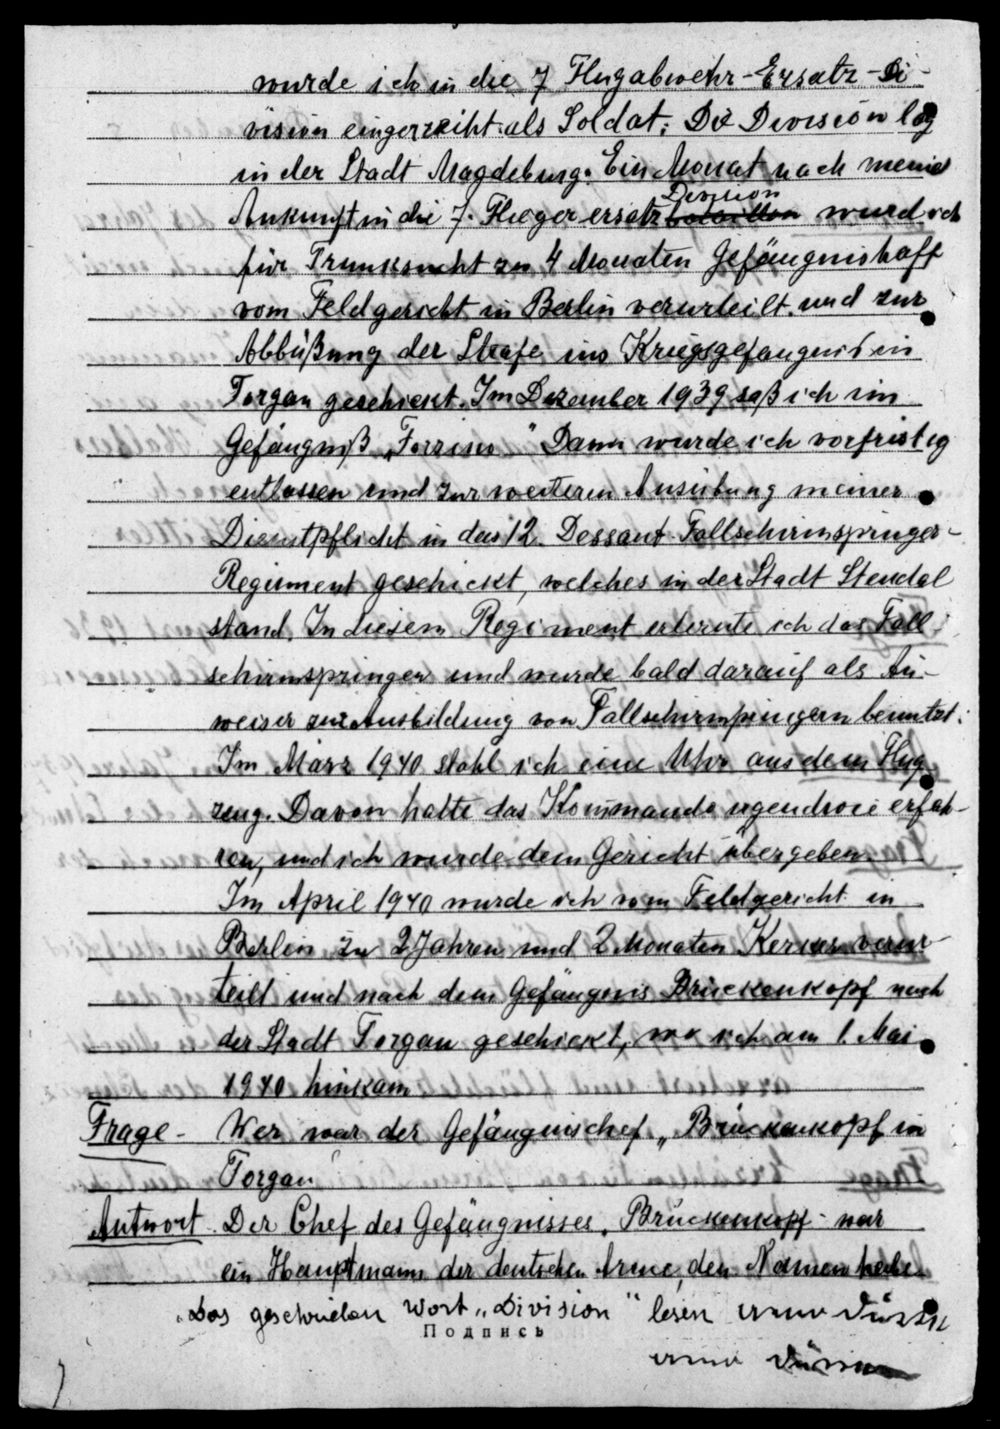 wurde ich in die 7 Flugabwehr-Ersatz-Di-
vision eingereiht als Soldat. Die Division lag
in der Stadt Magdeburg. Ein Monat nach meiner
Division
Ankunft in die 7. Fliegerersatz bataillon wurd ich
für Trunksucht zu 4 Monaten Gefängnishaft
vom Feldgericht in Berlin verurteilt und zur
Abbüßung der Strafe ins Kriegsgefängnis in
Torgau geschickt. Im Dezember 1939 saß ich im
Gefängniß „Torzino" Dann wurde ich vorfristig
entlassen und zur weiteren Ausübung meiner
Dienstpflicht in das 12. Dessant Fallschirmspringer-
Regiment geschickt, welches in der Stadt Stendal
stand. In diesem Regiment erlernte ich das Fall-
schirmspringen und wurde bald darauf als An-
weiser zur Ausbildung von Fallschirmspringern benutzt.
Im März 1940 stahl ich eine Uhr aus dem Flug
zeug. Davon hatte das Kommando irgendwie erfah-
ren, und ich wurde dem Gericht übergeben.
Im April 1940 wurde ich vom Feldgericht in
Berlin zu 2 Jahren und 2 Monaten Kerker verur-
teilt und nach dem Gefängnis Brückenkopf nach
der Stadt Torgau geschickt, wo ich am 1. Mai
1940 hinkam
Frage - Wer war der Gefängnischef „Brückenkopf in
Torgau
Antwort Der Chef des Gefängnisses „Brückenkopf" war
ein Hauptmann der deutschen Armee, den Namen habe
Das geschrieben Wort „Division" lesen
Подпись